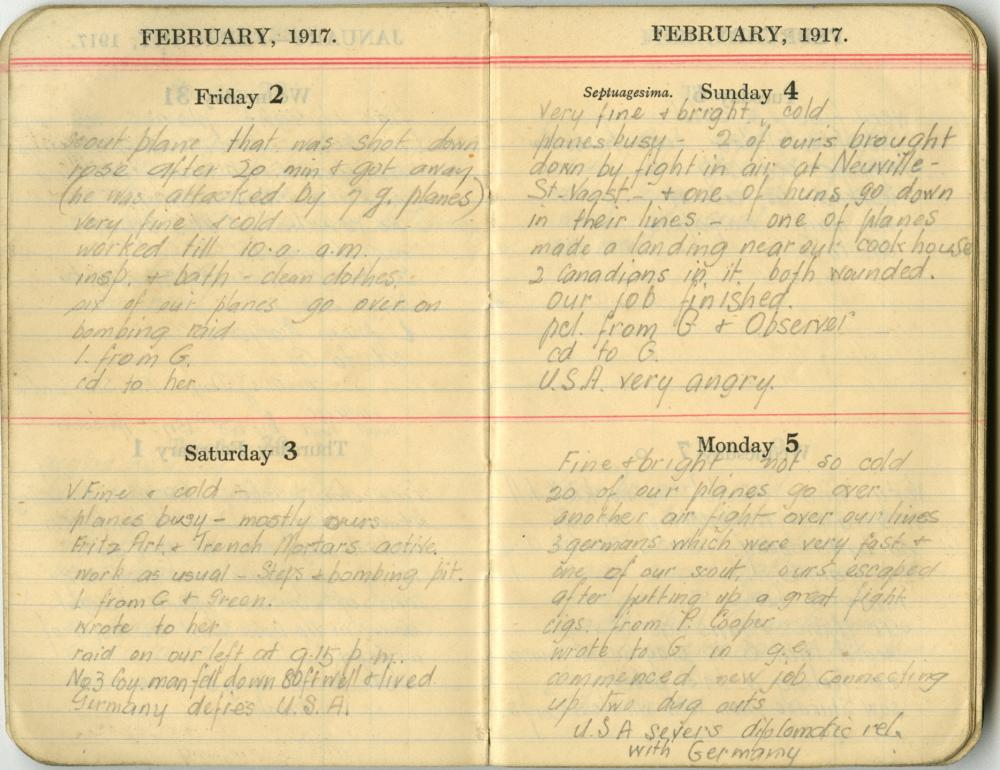 FEBRUARY, 1917.
Friday 2
scout plane that was shot down
rose after 20 min & got away
(he was attacked by 7 g. planes)
very fine & cold
worked till 10.a. a.m.
insp. & bath - clean clothes.
six of our planes go over on
bombing raid
l. from G.
cd to her
Saturday 3
V. Fine & cold -
planes busy - mostly ours
Fritz Art. & Trench Mortars active.
work as usual - Steps & bombing pit.
l. from G & Green.
wrote to her
raid on our left at 9.15 p.m.
No 3 Coy. man fell down 80 ft well & lived.
Germany defies U.S.A.
FEBRUARY, 1917.
Septuagesima. Sunday 4
very fine & bright, cold
planes busy - 2 of ours brought
down by fight in air at Neuville-
St-Vaast - & one of huns go down
in their lines - one of planes
made a landing near our cook house
2 Canadians in it. both wounded.
our job finished.
pcl. from G & Observer
cd to G.
U.S.A. very angry.
Monday 5
Fine & bright not so cold
20 of our planes go over
another air fight over our lines
3 germans which were very fast &
one of our scout. ours escaped
after putting up a great fight
cigs. from P. Cooper
wrote to G in g.e.
commenced new job connecting
up two dug outs
U.S A severs diplomatic rel.
with Germany